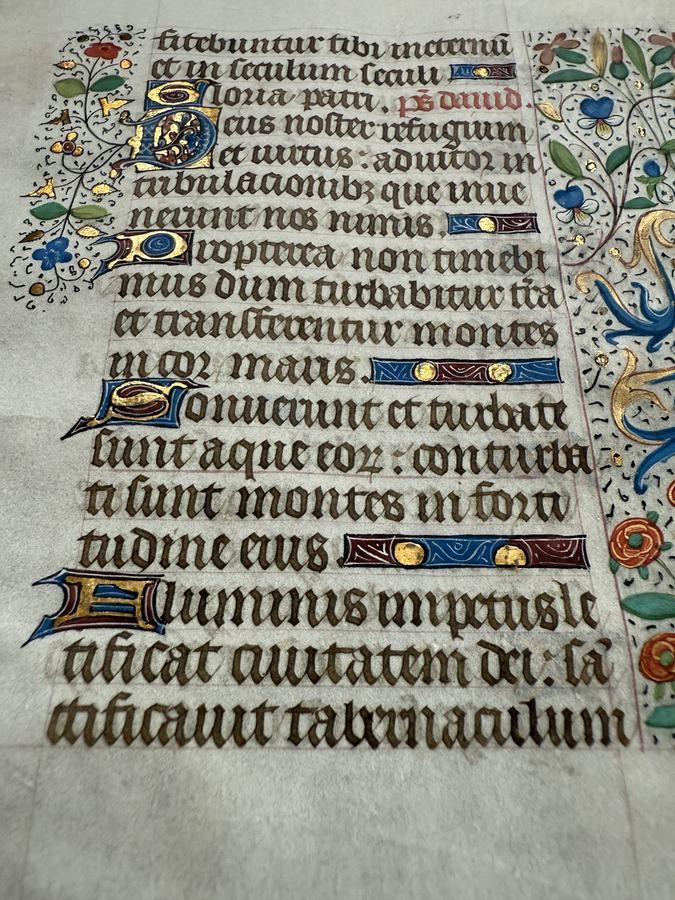 fitebuntur tibi ineternū
et in seculum seculi
Gloria patri. ps̄ dauid.
Deus noster refugium
et uirtus : adiutor in
tribulacionibꝫ que inue
nerunt nos nimis
Propterea non timebi
mus dum turbabitur tr̄a
et transferentur montes
in cor maris.
Sonuerunt et turbate
sunt aque eoꝝ : conturba
ti sunt montes in forti
tudine eius
Fluminis impetus le
tificat ciuitatem dei : sā
ctificauit tabernaculum